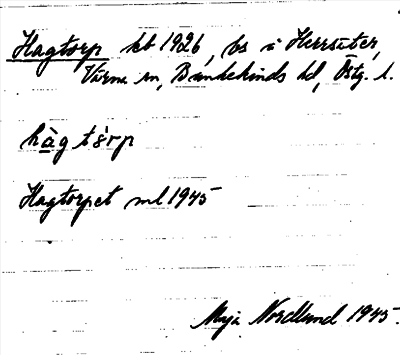 Hagtorp kb 1926, bs i Herrsäter,
Värna sn, Bankekinds hd, Östg. l.
hàgtårp
Hagtorpet ml 1945
Maja Nordlund 1945.